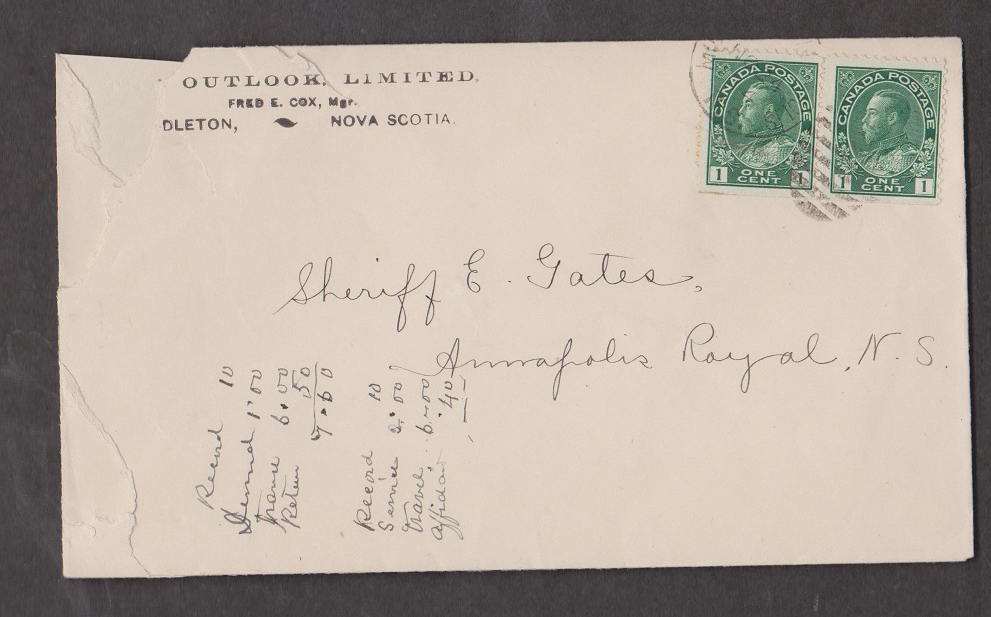 OUTLOOK, LIMITED,
FRED E. COX, Mgr.
DLETON, NOVA SCOTIA.
CANADA POSTAGE
1 ONE CENT 1
CANADA POSTAGE
1 ONE CENT 1
Sheriff E. Gates,
Annapolis Royal, N. S.
Record 10
1.00
Travel 6.00
Return 50
7.60
Record 10
Service 2.00
Travel 6.00
Affidavit 40